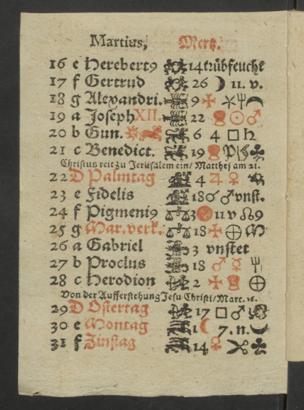 Martius, Mertz.
16 e Herebert9 14 trübfeucht
17 f Gertrud 26 ☽ 11. v.
18 g Alexandri. 9
19 a Joseph XII. 22 ☉ ♂
20 b Gun. 6 4 □ ♄
21 c Benedict. 19
Christus reit zu Jerusalem ein / Matthej am 21.
22 D Palmtag 4 ♃ ♀
23 e Fidelis 18 ♂ vnst.
24 f Pigmeni9 11 v ☊ 9
25 g Mar. verk. 18
26 a Gabriel 2 vnstet
27 b Proclus 18 ♂ ☿
28 c Herodion 2 ♀
Von der Aufferstehung Jesu Christi / Marc. 16.
29 D Ostertag 17 □ ♂
30 e Montag 1 ☾ 7. n. ☾
31 f Zinstag 14